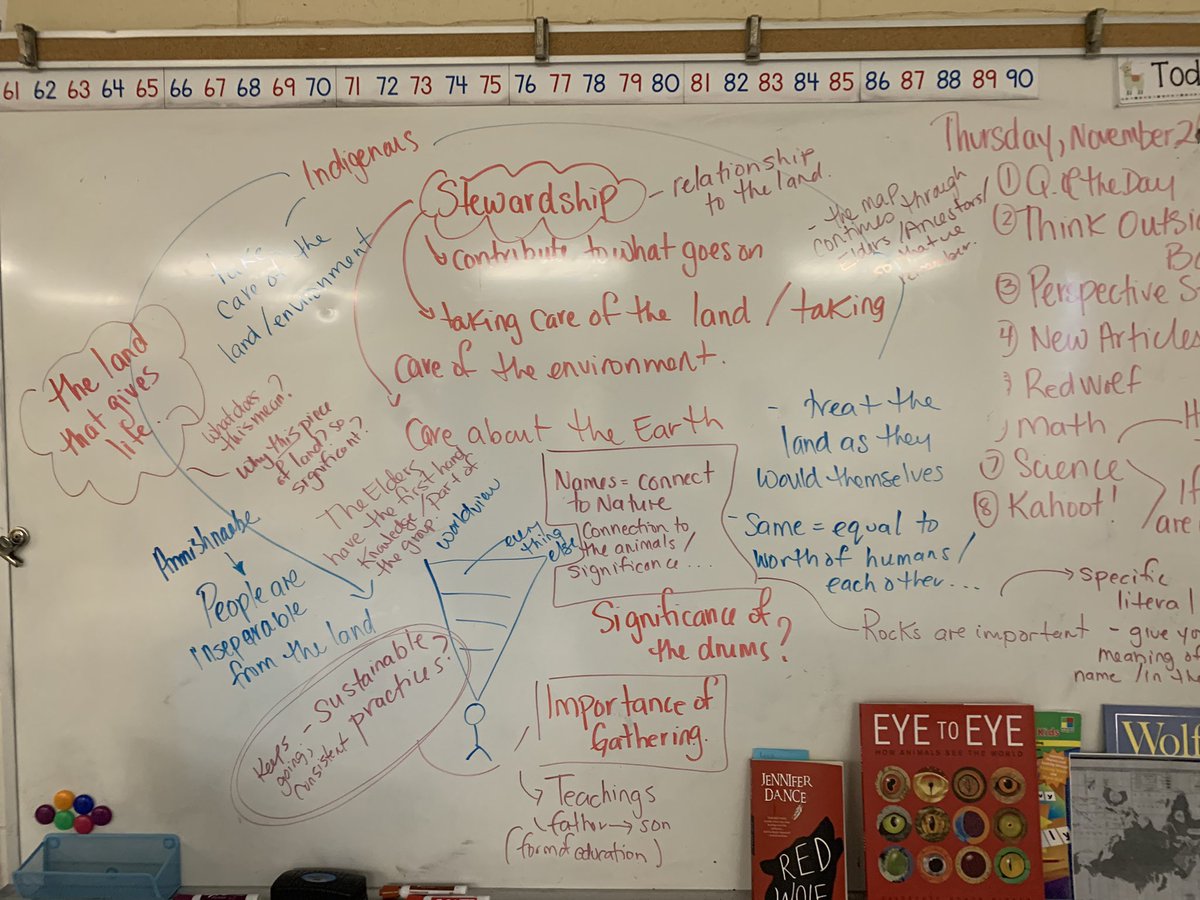 61 62 63 64 65 66 67 68 69 70 71 72 73 74 75 76 77 78 79 80 81 82 83 84 85 86 87 88 89 90
Tod
Indigenous
take
care of the
land/environment
Stewardship
- relationship
to the land.
contribute to what goes on
taking care of the land / taking
care of the environment.
Care about the Earth
- the map
continues through
Elders/Ancestors/
so that we
the land
that gives
life...
What does
this mean?
Why this piece
of land? so
significant?
The Elders
have the first hand
Knowledge/Part of
the group
worldview
every
thing
else
Names = connect
to Nature
Connection to
the animals/
significance....
- treat the
land as they
would themselves
- Same = equal to
worth of humans/
each other...
Annishnaabe
People are
inseparable
from the land
Significance of
the drums?
- Sustainable
practices?
Keeps
going,
consistent
Importance of
Gathering.
Teachings
father → son
(form of education)
Rocks are important
specific
literal
- give yo
meaning of
name /in the
Thursday, November 2
① Q. of the Day
② Think Outsi
Bo
③ Perspective S
4) New Articles
Redwolf
Math
H
⑦ Science
If
are
⑧ Kahoot!
JENNIFER
DANCE
RED
WOLF
EYE TO EYE
HOW ANIMALS SEE THE WORLD
Kids
Wolf